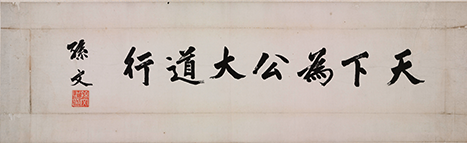 天下為公大道行
孫文